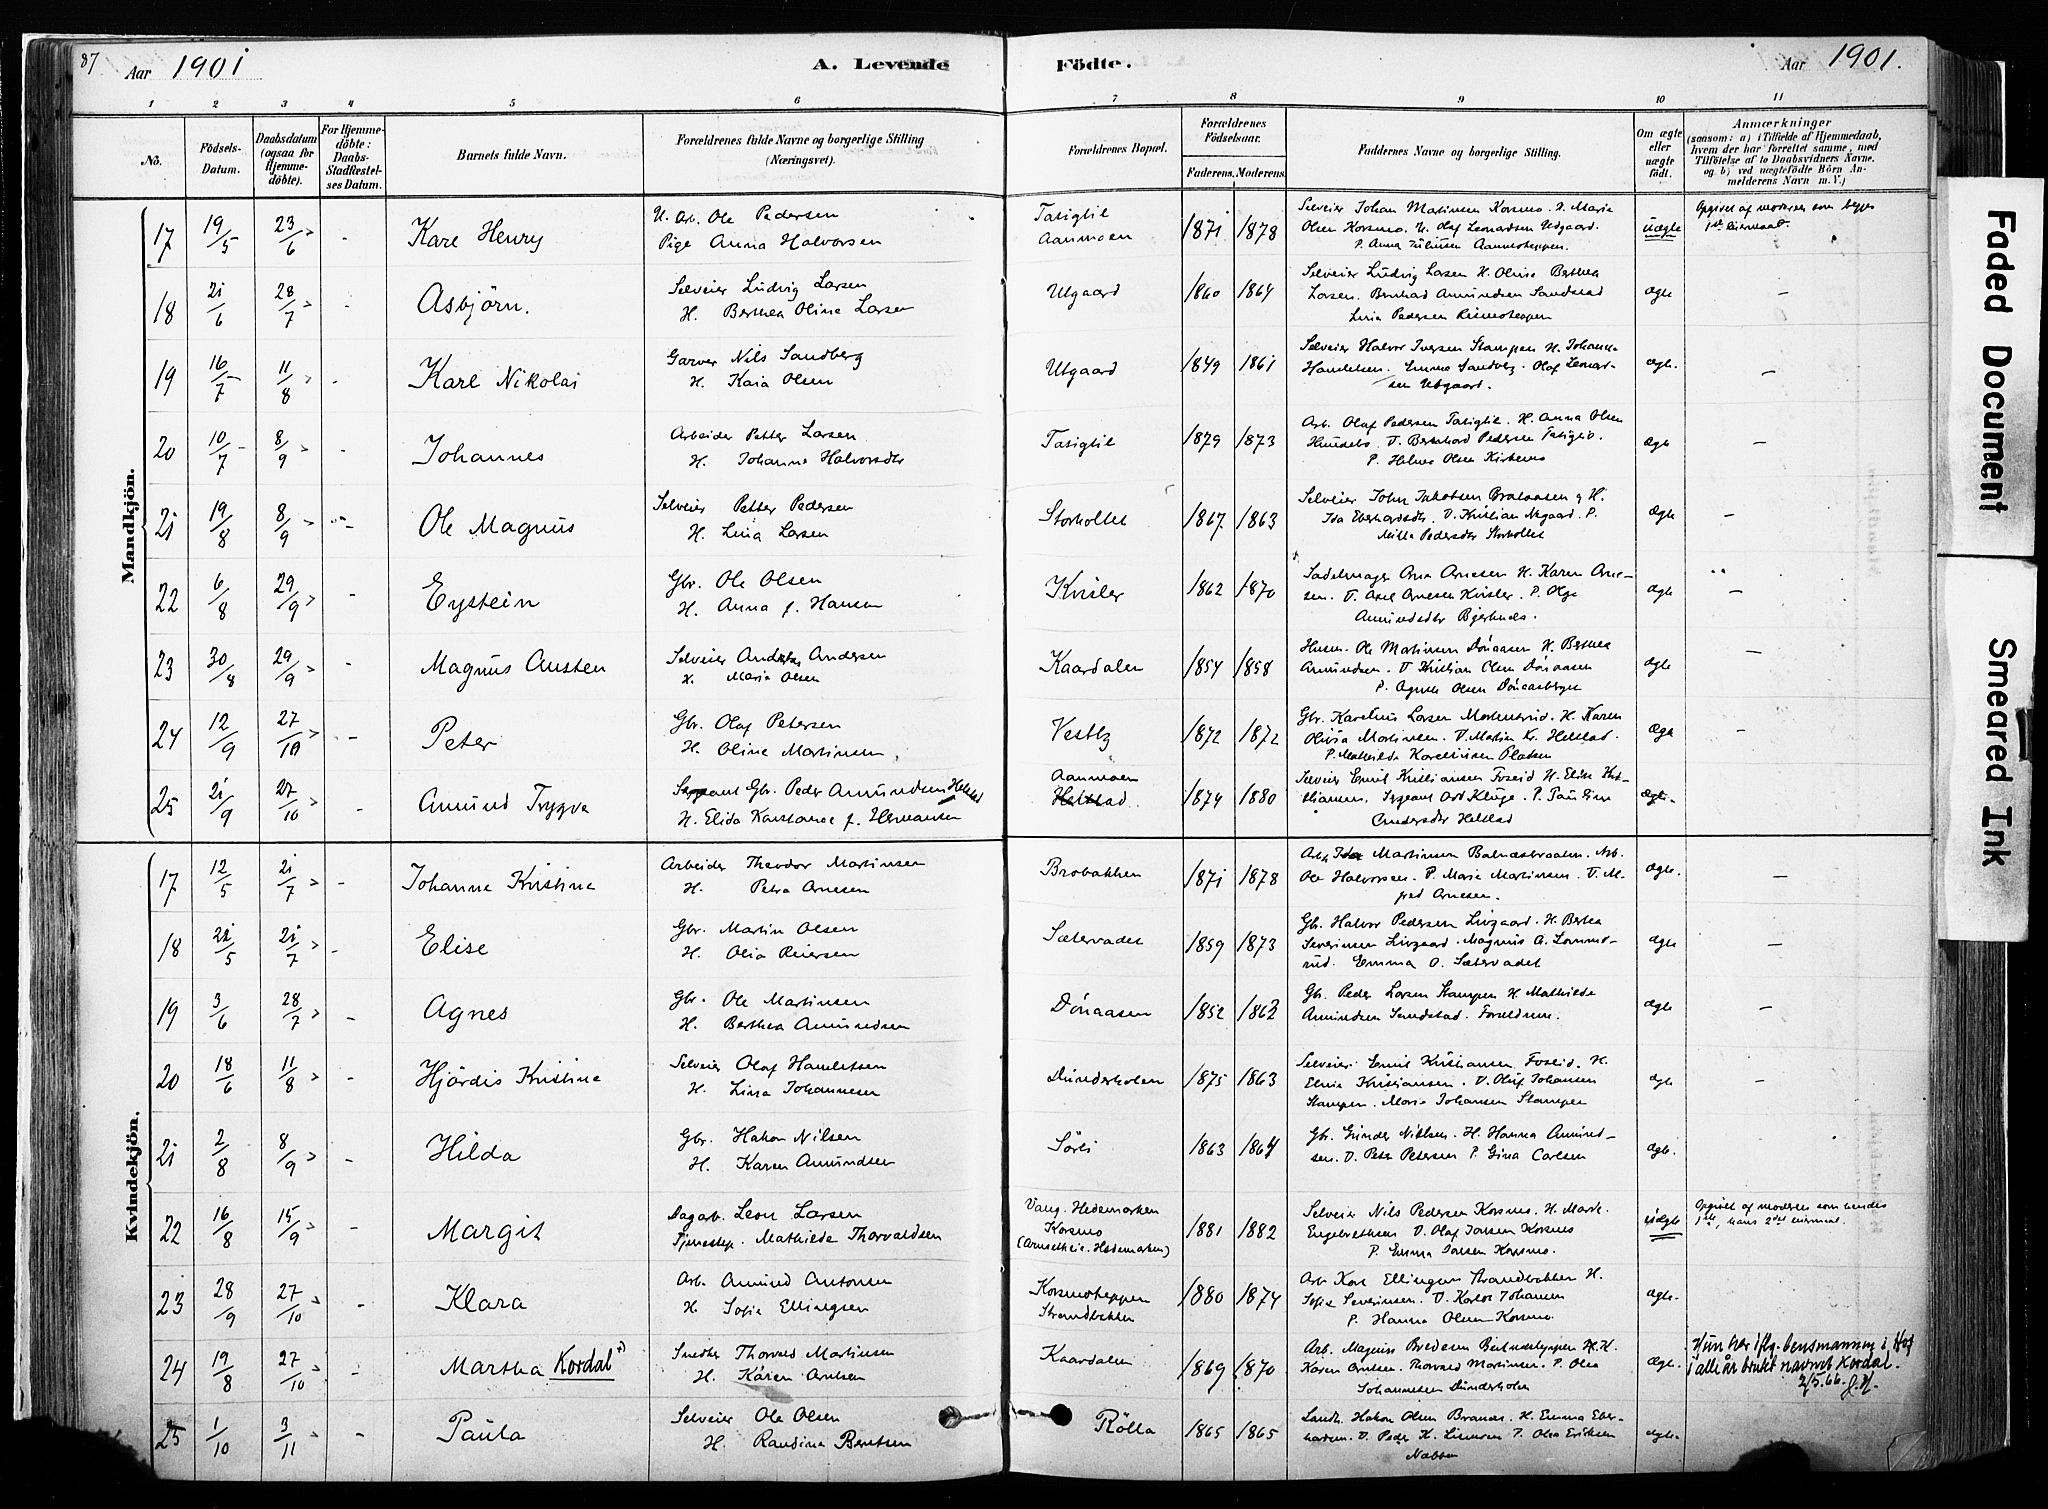 87
Aar 1901
A. Levende
Födte.
Aar 1901.
1 2 3 4 5 6 7 8 9 10 11
No.
Födsels-Datum.
Daabsdatum (ogsaa for Hjemmedöbte).
For Hjemmedöbte: Daabs-Stadfæstelses Datum.
Barnets fulde Navn.
Forældrenes fulde Navne og borgerlige Stilling (Næringsvei).
Forældrenes Bopæl.
Forældrenes Födselsaar.
Faderens. Moderens.
Faddernes Navne og borgerlige Stilling.
Om ægte eller uægte födt.
Anmærkninger
(saasom: a) i Tilfælde af Hjemmedaab,
hvem der har forrettet samme, med
Tilföielse af to Daabsvidners Navne,
og b) ved uægtefödte Börn An-
melderens Navn m. V.)
Mandkjön.
17 19/5 23/6 - Karl Henry
U. Arb. Ole Pedersen
Pige Anna Halvorsen
Aanmoen
1871 1878
Selveier Johan Martinsen Korsmo. H. Marie
Olsen Korsmo. U. Olaf Leonardsen Utgaard.
P. Anna Juliusen
uægte
Opgivet af moderen som begges
1ste leiermaal.
18 21/6 28/7 - Asbjörn.
Selveier Ludvig Larsen
H. Berthea Oline Larsen
Utgaard
1860 1864
Selveier Ludvig Larsen H. Oline Berthea
Larsen. Bernhard Amundsen Sandstad
Lina Pedersen
ægte -
19 16/7 11/8 - Karl Nikolai
Garver Nils Sandberg
H. Kaia Olsen
Utgaard
1849 1861
Selveier Halvor Iversen Stampen H. Johanne
Emma Sandberg. Olaf Leonard-
sen Utgaard.
ægte. -
20 10/7 8/9 - Johannes
Arbeider Petter Larsen
H. Johanne Halvorsdtr
1879 1873
Arb. Olaf Pedersen H. Anna Olsen
U. Bernhard Pedersen
P. Helma Olsen
ægte -
21 19/8 8/9 - Ole Magnus
Selveier Petter Pedersen
H. Lina Larsen
Storholtet
1867 1863
Selveier John Jakobsen Brataasen & H.
Ida Eberhardsdtr. U. Kristian P.
Milla Pedersdtr Storholtet
ægte -
22 6/8 29/9 - Eystein
Gbr. Ole Olsen
H. Anna f. Hansen
Kvisler
1862 1870
Sadelmager Arne Arnesen H. Karen Arne-
sen. U. Axel Arnesen Kvisler. P. Olga
Amundsdtr Bjerknes.
ægte -
23 30/8 29/9 - Magnus Austen
Selveier Andreas Andersen
H. Maria Olsen
Kaardalen
1854 1858
Husm. Ole Martinsen Dönaasen H. Berthea
Amundsen. U Kristian Olsen Dönaasen
P. Agnethe Olsen Dönaasberget
ægte -
24 12/9 27/10 - Peter
Gbr. Olaf Petersen
H. Oline Martinsen
Vestby
1872 1872
Gbr. Karelius Larsen H. Karen
Olivia Martinsen. U. Martin Kr. Helstad.
P. Mathilda Kareliusen
ægte -
25 21/9 27/10 - Amund Trygve
Sergeant Gbr. Peder Amundsen Helstad
H. Elida Konstance f. Hermansen
Aanmoen
Helstad
1874 1880
Selveier Emil Kristiansen Foseid H. Elise Kri-
stiansen. Sergeant Kluge. P. Pauline
Andersdtr Helstad
ægte.
Kvindekjön.
17 12/5 21/7 - Johanne Kristine
Arbeider Theodor Martinsen
H. Petra Arnesen
Brobakken
1871 1878
Arb. Martinsen Arb.
Ole Halvorsen. P. Marie Martinsen. U. M-
Arnesen.
ægte. -
18 21/5 21/7 - Elise
Gbr. Martin Olsen
H. Olia Reiersen
Sætervadet
1859 1873
Gbr. Halvor Pedersen Livgaard. H. Berthea
Severinsen Livgaard. Magnus A. Lomme-
rud. Emma O. Sætervadet
ægte -
19 3/6 28/7 - Agnes
Gbr. Ole Martinsen
H. Berthea Amundsen
Dönaasen
1852 1862
Gbr. Peder Larsen Stampen H. Mathilde
Amundsen Sandstad. Forældrene.
ægte -
20 18/6 11/8 - Hjördis Kristine
Selveier Olaf
H. Lina Johannesen
Dunderholen
1875 1863
Selveier Emil Kristiansen Foseid. H.
Elvia Kristiansen. U. Oluf Johansen
Stampen. Maria Johansen Stampen
ægte -
21 2/8 8/9 - Hilda
Gbr. Hakon Nilsen
H. Karen Amundsen
Sörli
1863 1864
Gbr. Gunder Nielsen. H. Hanna Amund-
sen. U. Peter Petersen P. Gina Carlsen
ægte.
22 16/8 15/9 - Margit
Dagarb. Leon Larsen
Tjenestep. Mathilde Thorvaldsen
Vang. Hedemarken
Korsmo
1881 1882
Selveier Nils Pedersen Korsmo. H. Marte
Engebrethsen U. Olaf Jonsen Korsmo
P. Emma Jonsen Korsmo.
uægte
Opgivet af moderen som hendes
1ste, hans 2det leiermaal.
23 28/9 27/10 - Klara
Arb. Amund Antonsen
H. Sofie Ellingsen
Korsmoteppen
Strandbakken
1880 1874
Arb Karl Ellingsen Strandbakken H.
Sofie Severinsen. U. Karl Johansen
P. Hanna Olsen Korsmo.
ægte.
24 19/8 27/10 - Martha Kordal x)
Smed Thorvald Martinsen
H. Karen Arntsen
Kaardalen
1869 1870
Arb. Magnus H.
Karen Arntsen. Thorvald Martinsen. P. Olea
Johannesen Dunderholen
ægte.
Hun har iflg. lensmannen i Hof
i alle år brukt navnet Kordal.
2/5.66.
25 1/10 3/11 - Paula
Selveier Ole Olsen
H. Randine Berntsen
Rölla
1865 1865
Landh. Hakon Olsen Brandts. H. Emma Eber-
hardsen. U. Peder K. P. Olea Eriksen
Nabben
ægte.
Faded Document
Smeared Ink